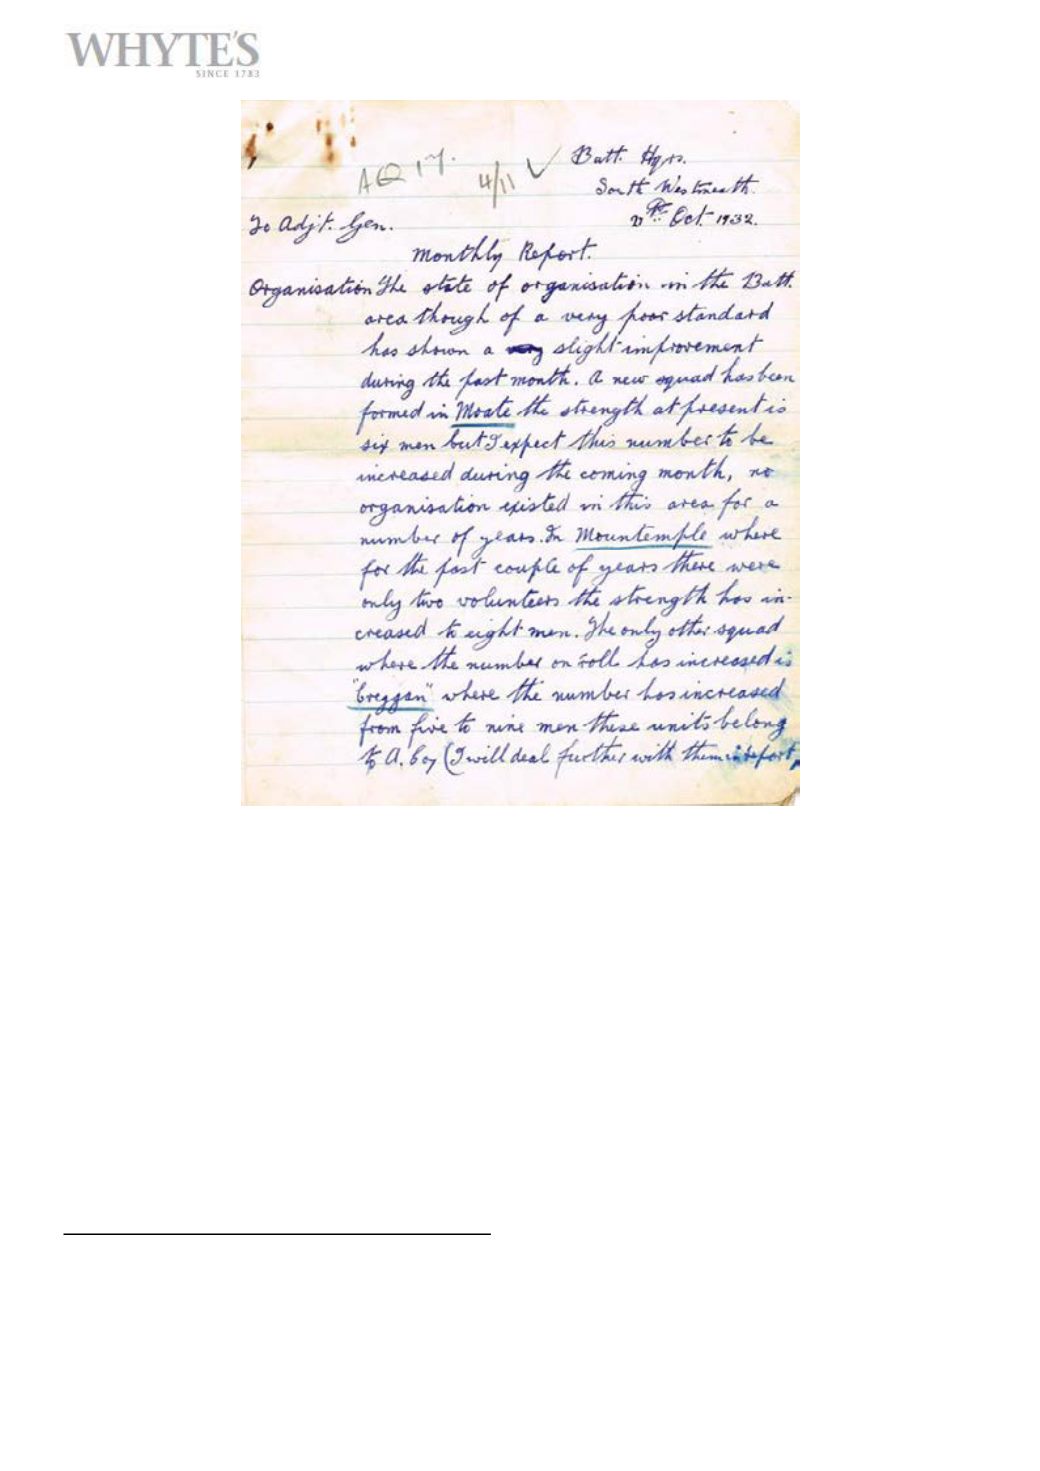 WHYTE'S
SINCE 1783
Batt. Hqrs.
A Q 17. 4/11 ✓
South Westmeath.
Oct. 1932.
To Adjt. Gen.
Monthly Report.
Organisation The state of organisation in the Batt.
area though of a very poor standard
has shown a slight improvement
during the past month. A new squad has been
formed in Moate the strength at present is
six men but I expect this number to be
increased during the coming month, no
organisation existed in this area for a
number of years. In Mountemple where
for the past couple of years there were
only two volunteers the strength has in-
creased to eight men. The only other squad
where the number on roll has increased is
"Creggan" where the number has increased
from five to nine men these units belong
to A. Coy (I will deal further with them in report,